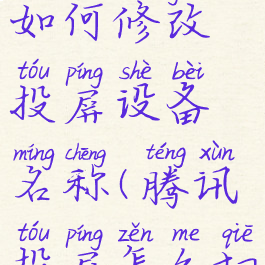 如何修改
tóu píng shè bèi
投屏设备
míng chēng téng xùn
名称(腾讯
tóu píng zěn me qiē